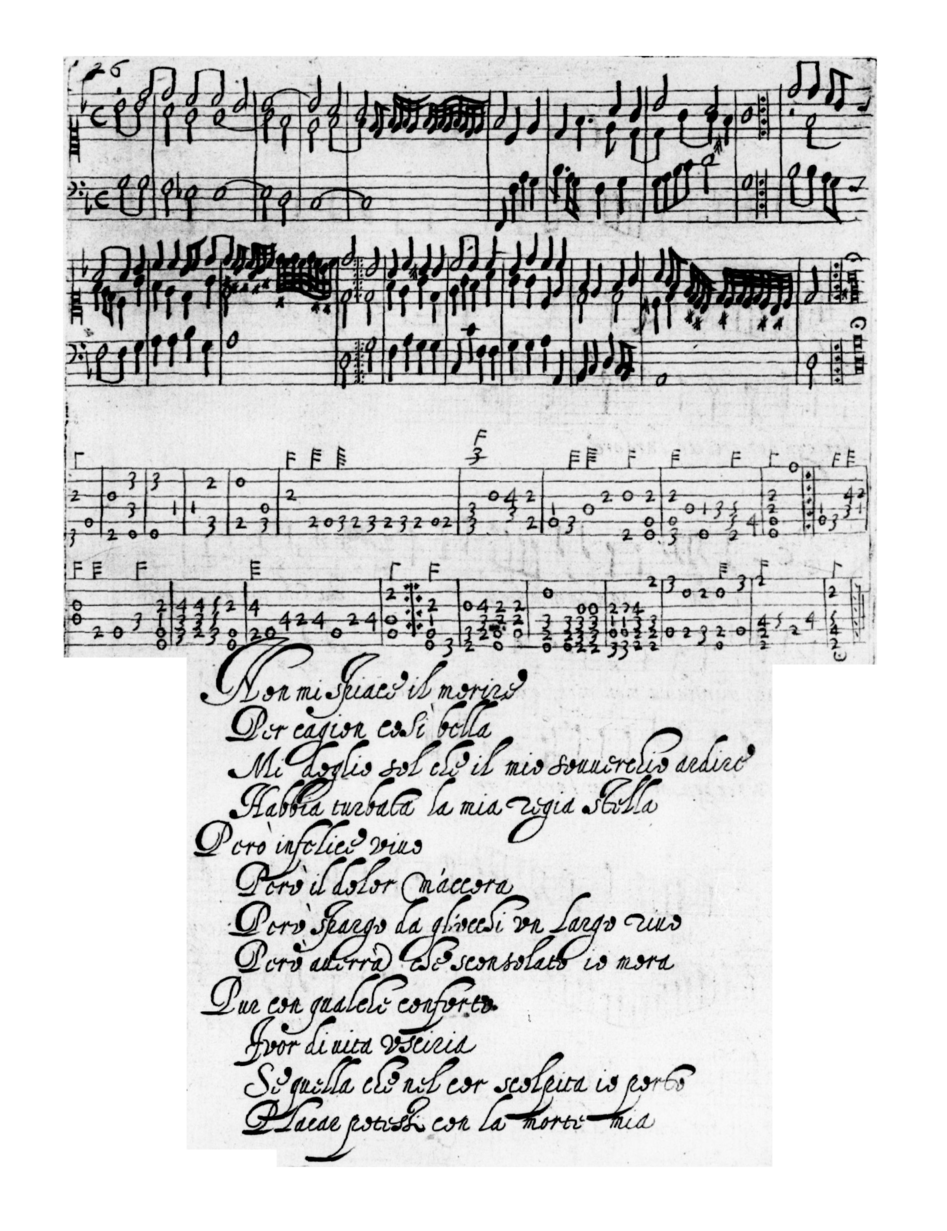 26
Non mi spiace il morire
Per cagion così bella
Mi doglio sol che il mio souuerchio ardire
Habbia turbata la mia regia stella
Però infelice viuo
Però il dolor m'accora
Però spargo da gl'occhi vn largo riuo
Però auerrà che sconsolato io mora
Pur con qualche conforto
Fuor di uita vsciria
Se quella che nel cor scolpita io porto
Placar potessi con la morte mia